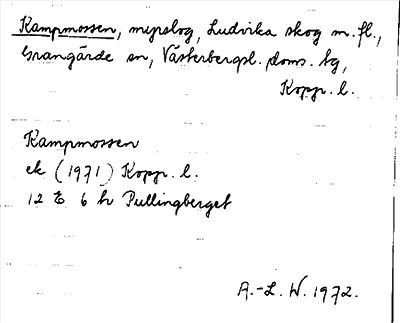 Kampmossen, myrslog, Ludvika skog m.fl.,
Grangärde sn, Västerbergsl. doms. tg,
Kopp. l.
Kampmossen
ek (1971) Kopp. l.
12 E 6 h Pullingberget
A.-L. W. 1972.